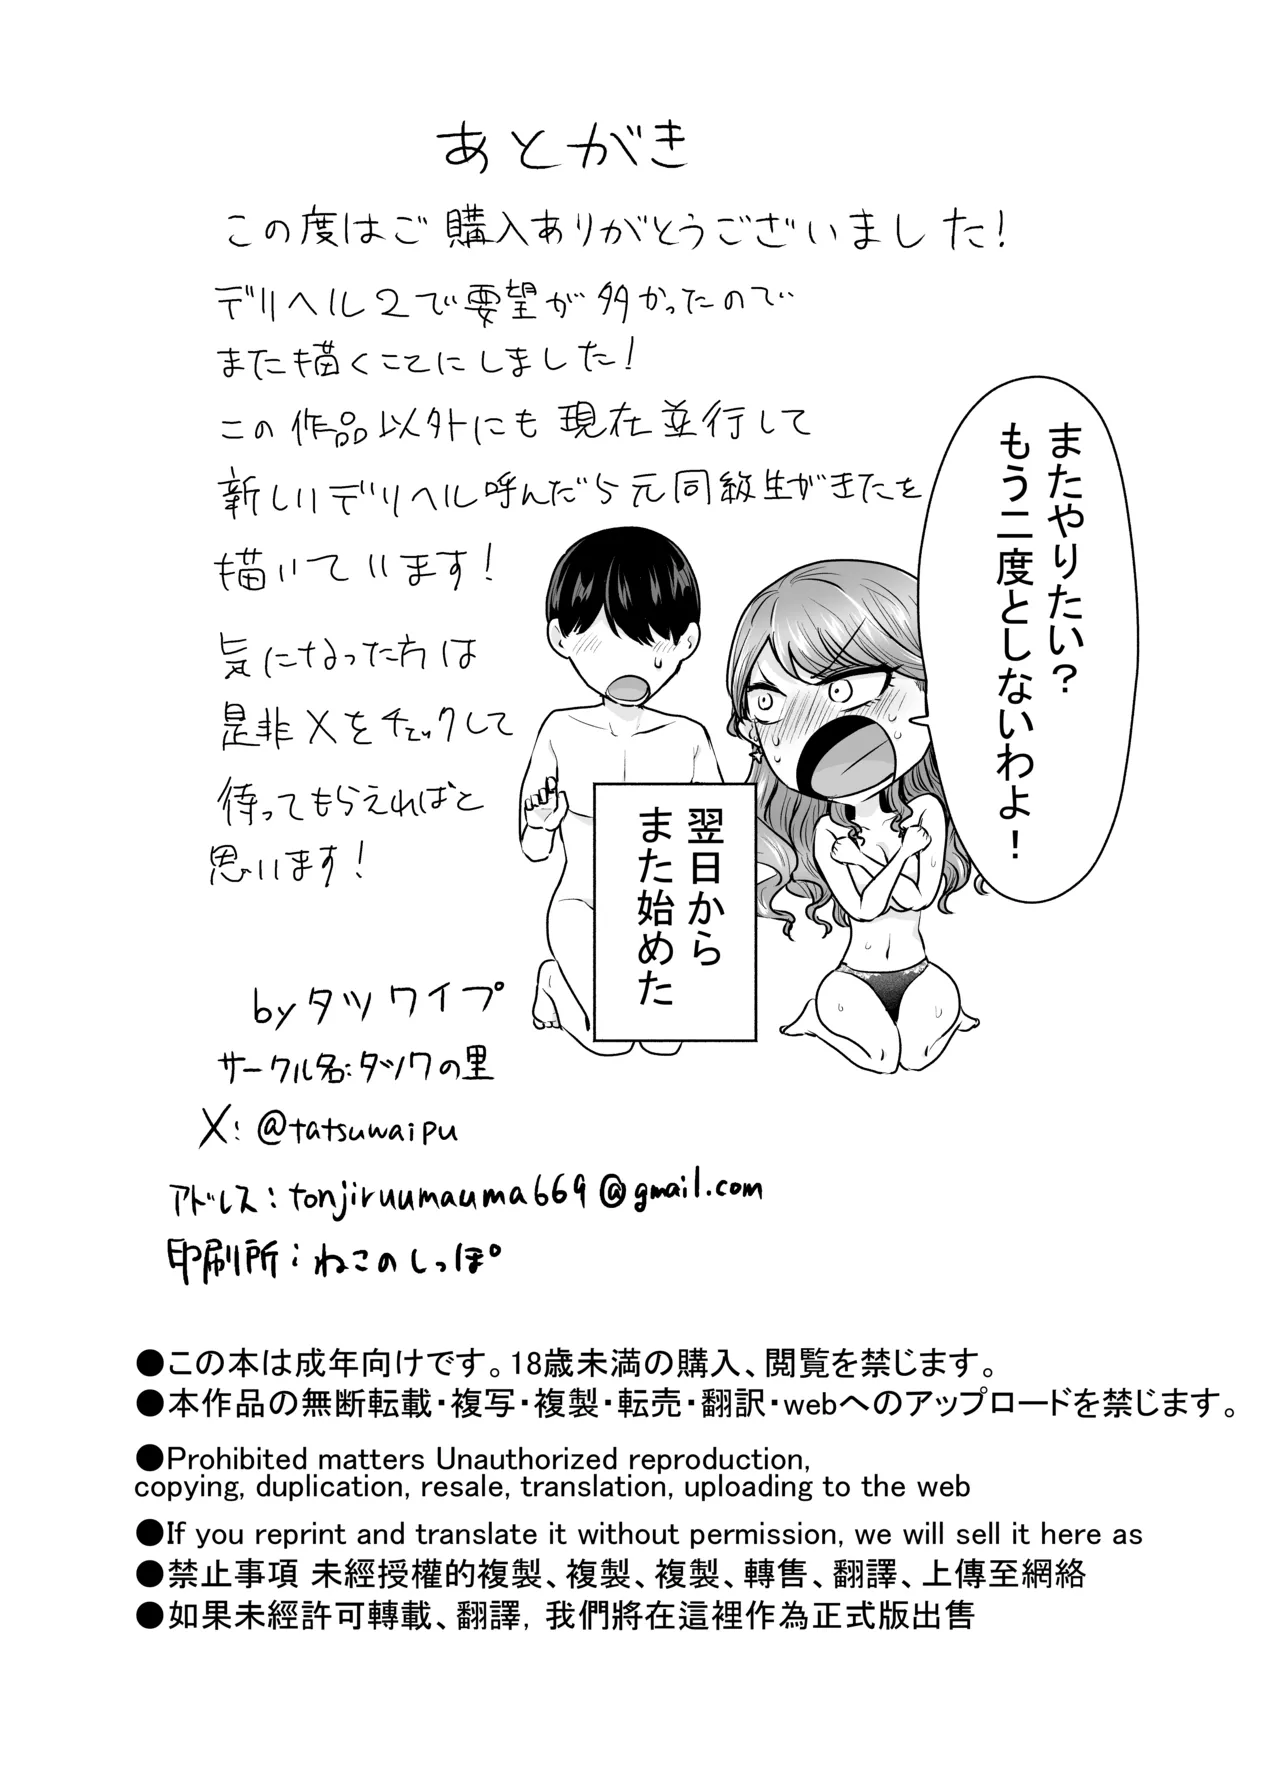 あとがき
この度はご購入ありがとうございました!
デリヘル2で要望が多かったので
また描くことにしました!
この作品以外にも現在並行して
新しいデリヘル呼んだら元同級生がきたを
描いています!
気になった方は
是非Xをチェックして
待ってもらえればと
思います!
またやりたい?
もう二度としないわよ!
翌日から
また始めた
byタツワイプ
サークル名:タツワの里
X:@tatsuwaipu
アドレス:tonjiruumauma669@gmail.com
印刷所:ねこのしっぽ
●この本は成年向けです。18歳未満の購入、閲覧を禁じます。
●本作品の無断転載・複写・複製・転売・翻訳・webへのアップロードを禁じます。
●Prohibited matters Unauthorized reproduction,
copying, duplication, resale, translation, uploading to the web
●If you reprint and translate it without permission, we will sell it here as
●禁止事項 未經授權的複製、複製、複製、轉售、翻譯、上傳至網絡
●如果未經許可轉載、翻譯, 我們將在這裡作為正式版出售